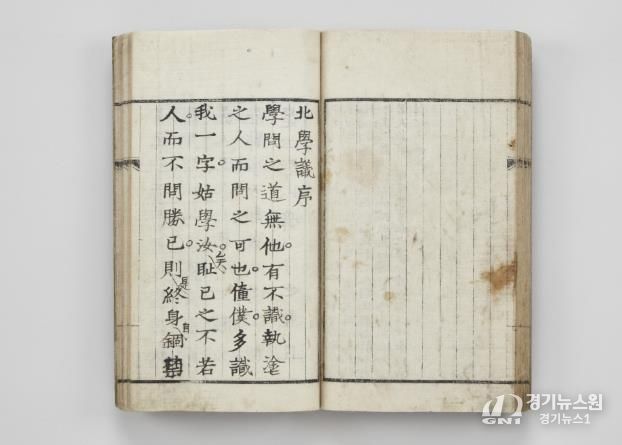 北學議序
學問之道無他有不識執塗
之人而問之可也僮僕多識
我一字姑學汝矣恥己之不若
人而不問勝己則是終身自錮
경기뉴스원
GN1 경기뉴스1